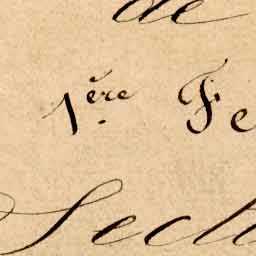 de
1ère Fe
Sect